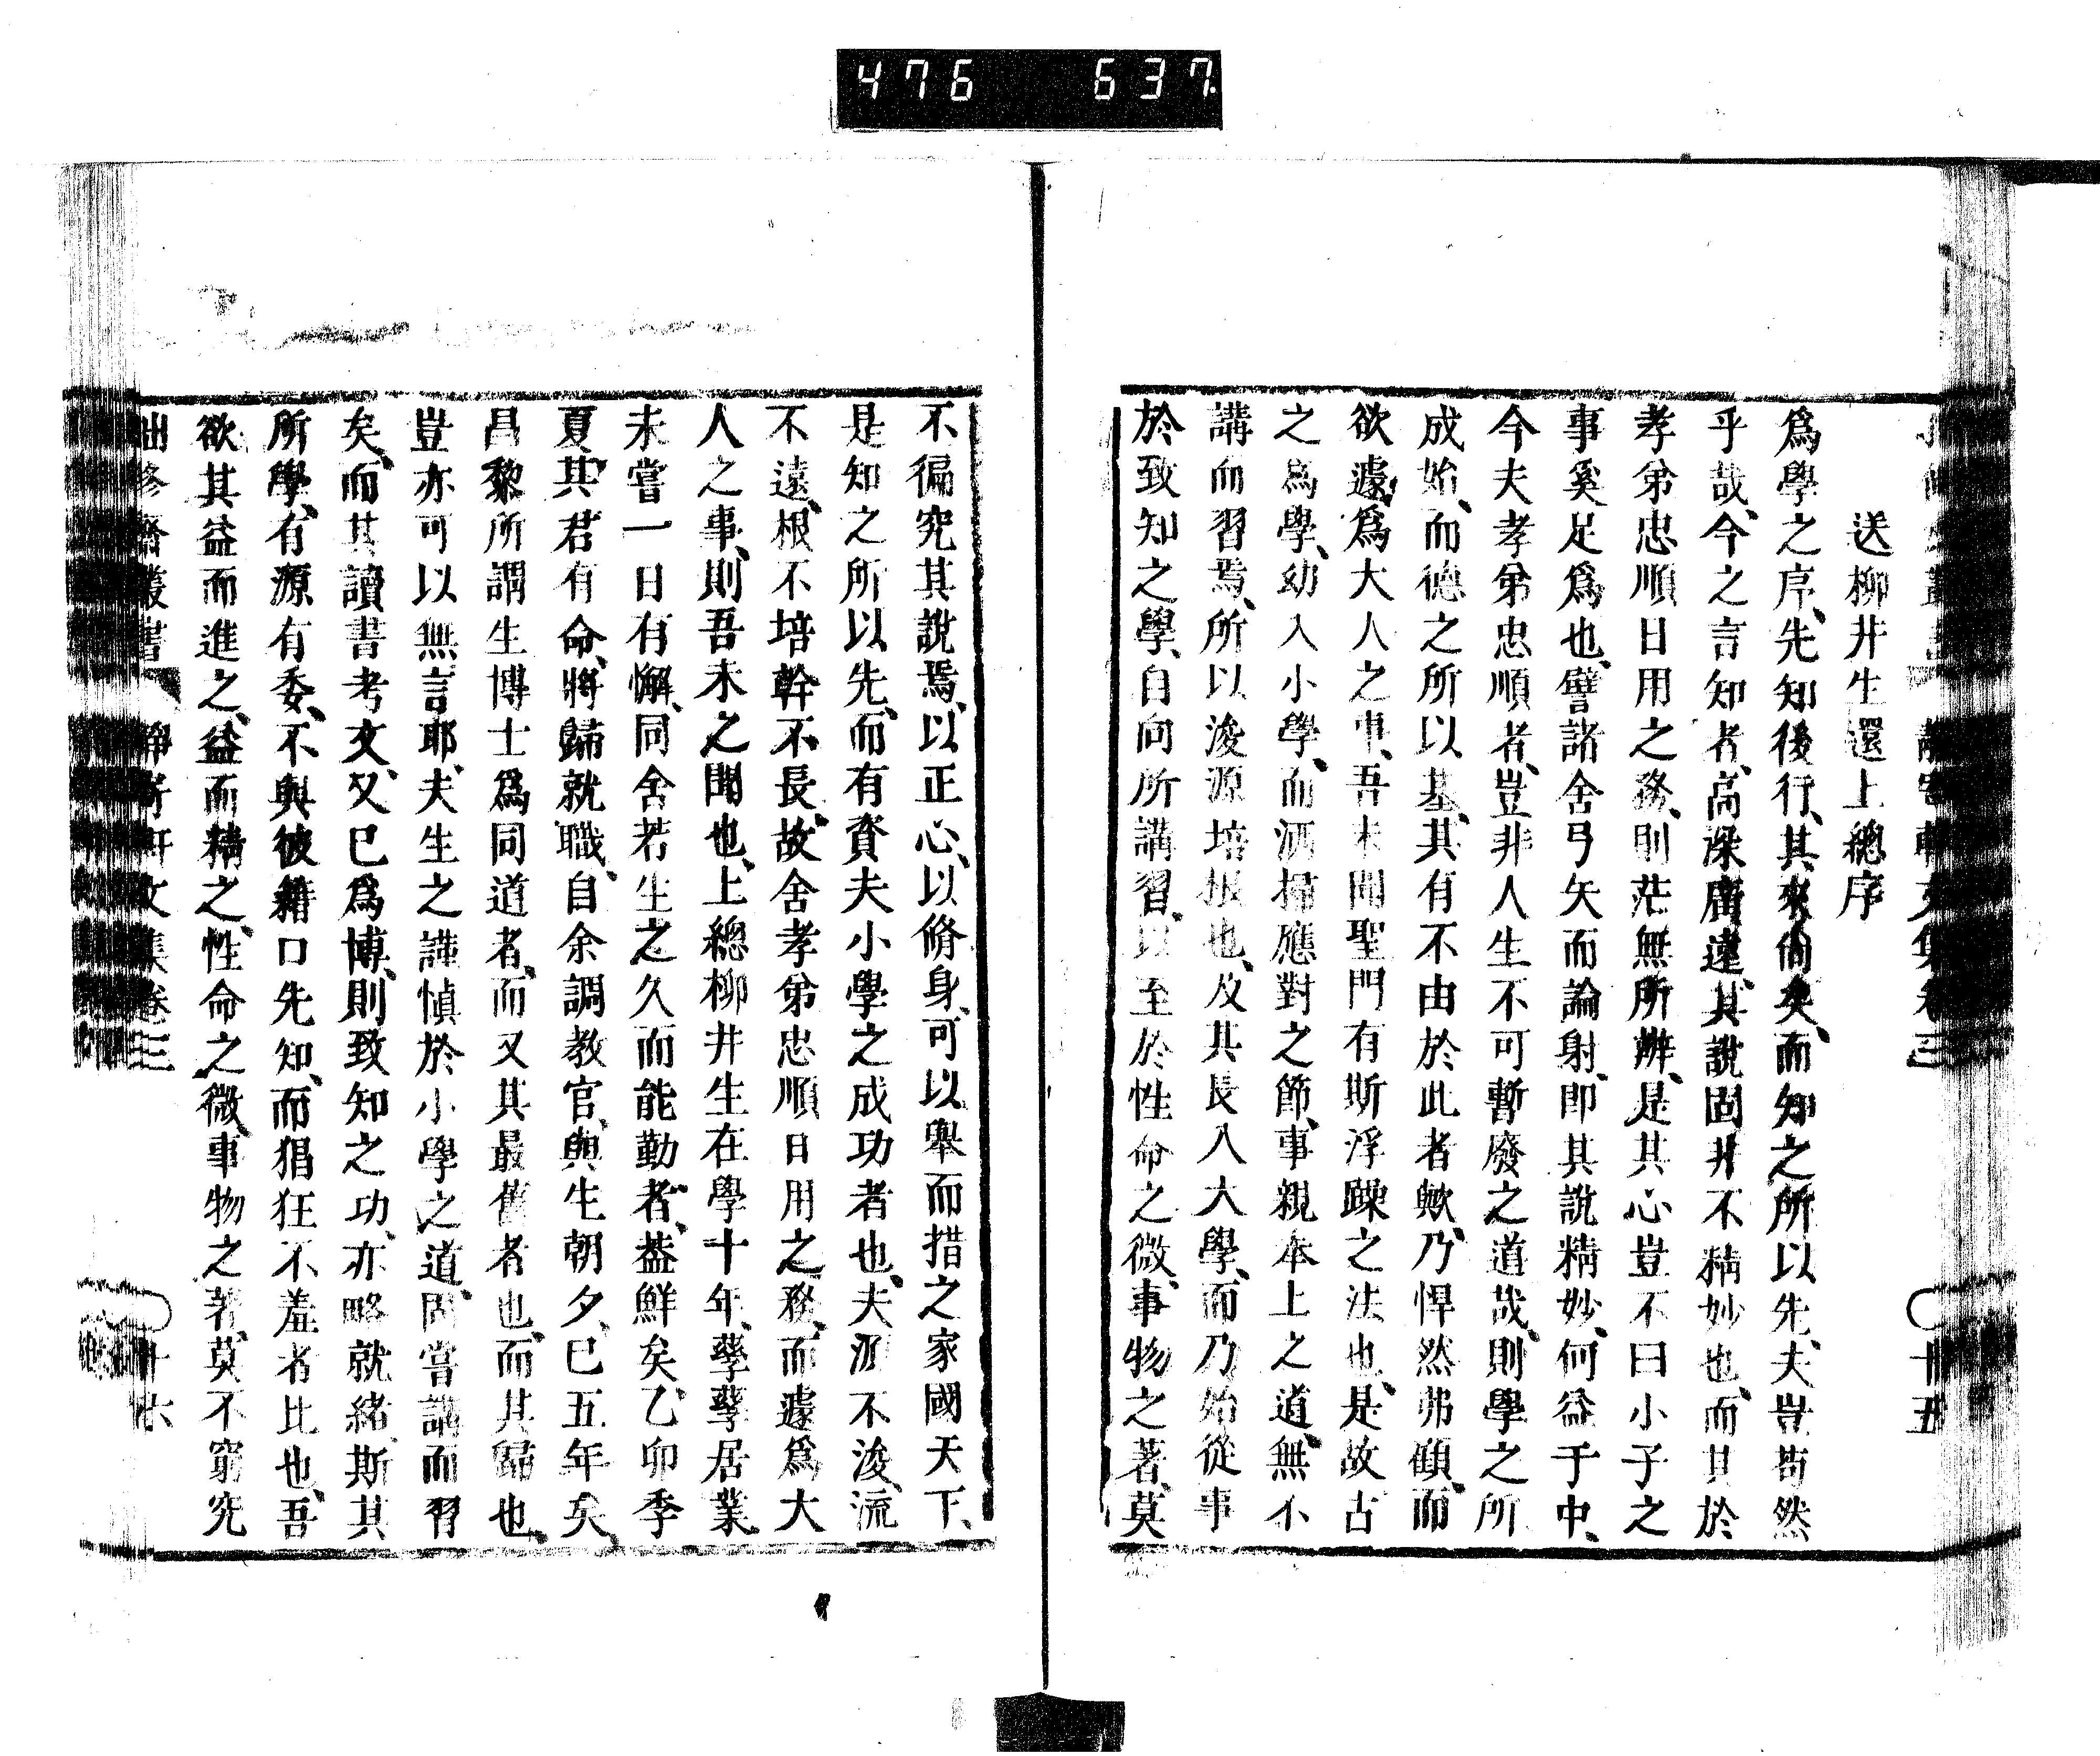 476 637
送柳井生還上總序
爲學之序、先知後行、其來尙矣、而知之所以先、夫豈苟然
乎哉、今之言知者、高深廣遠、其說固非不精妙也、而其於
孝弟忠順日用之務、則茫無所辨、是其心豈不曰小子之
事奚足爲也、譬諸舍弓矢而論射、卽其說精妙、何益于中、
今夫孝弟忠順者、豈非人生不可暫廢之道哉、則學之所
成始、而德之所以基、其有不由於此者歟、乃悍然弗顧、而
欲遽爲大人之事、吾未聞聖門有斯浮躁之法也、是故古
之爲學、幼入小學、而洒掃應對之節、事親奉上之道、無不
講而習焉、所以浚源培根也、及其長入大學、而乃始從事
於致知之學、自向所講習、以至於性命之微、事物之著、莫
不徧究其說焉、以正心、以脩身、可以擧而措之家國天下、
是知之所以先、而有資夫小學之成功者也、夫源不浚、流
不遠、根不培幹不長、故舍孝弟忠順日用之務、而遽爲大
人之事、則吾未之聞也、上總柳井生在學十年、孳孳居業、
未嘗一日有懈、同舍若生之久而能勤者、葢鮮矣、乙卯季
夏、其君有命、將歸就職、自余調教官、與生朝夕、已五年矣、
昌黎所謂生博士爲同道者、而又其最舊者也、而其歸也、
豈亦可以無言耶、夫生之謹愼於小學之道、固嘗講而習
矣、而其讀書考文、又已爲博、則致知之功、亦略就緒、斯其
所學、有源有委、不與彼藉口先知、而猖狂不羞者比也、吾
欲其益而進之、益而精之、性命之微、事物之著、莫不窮究
崇修齋叢書 靜寄軒文集卷三 十六